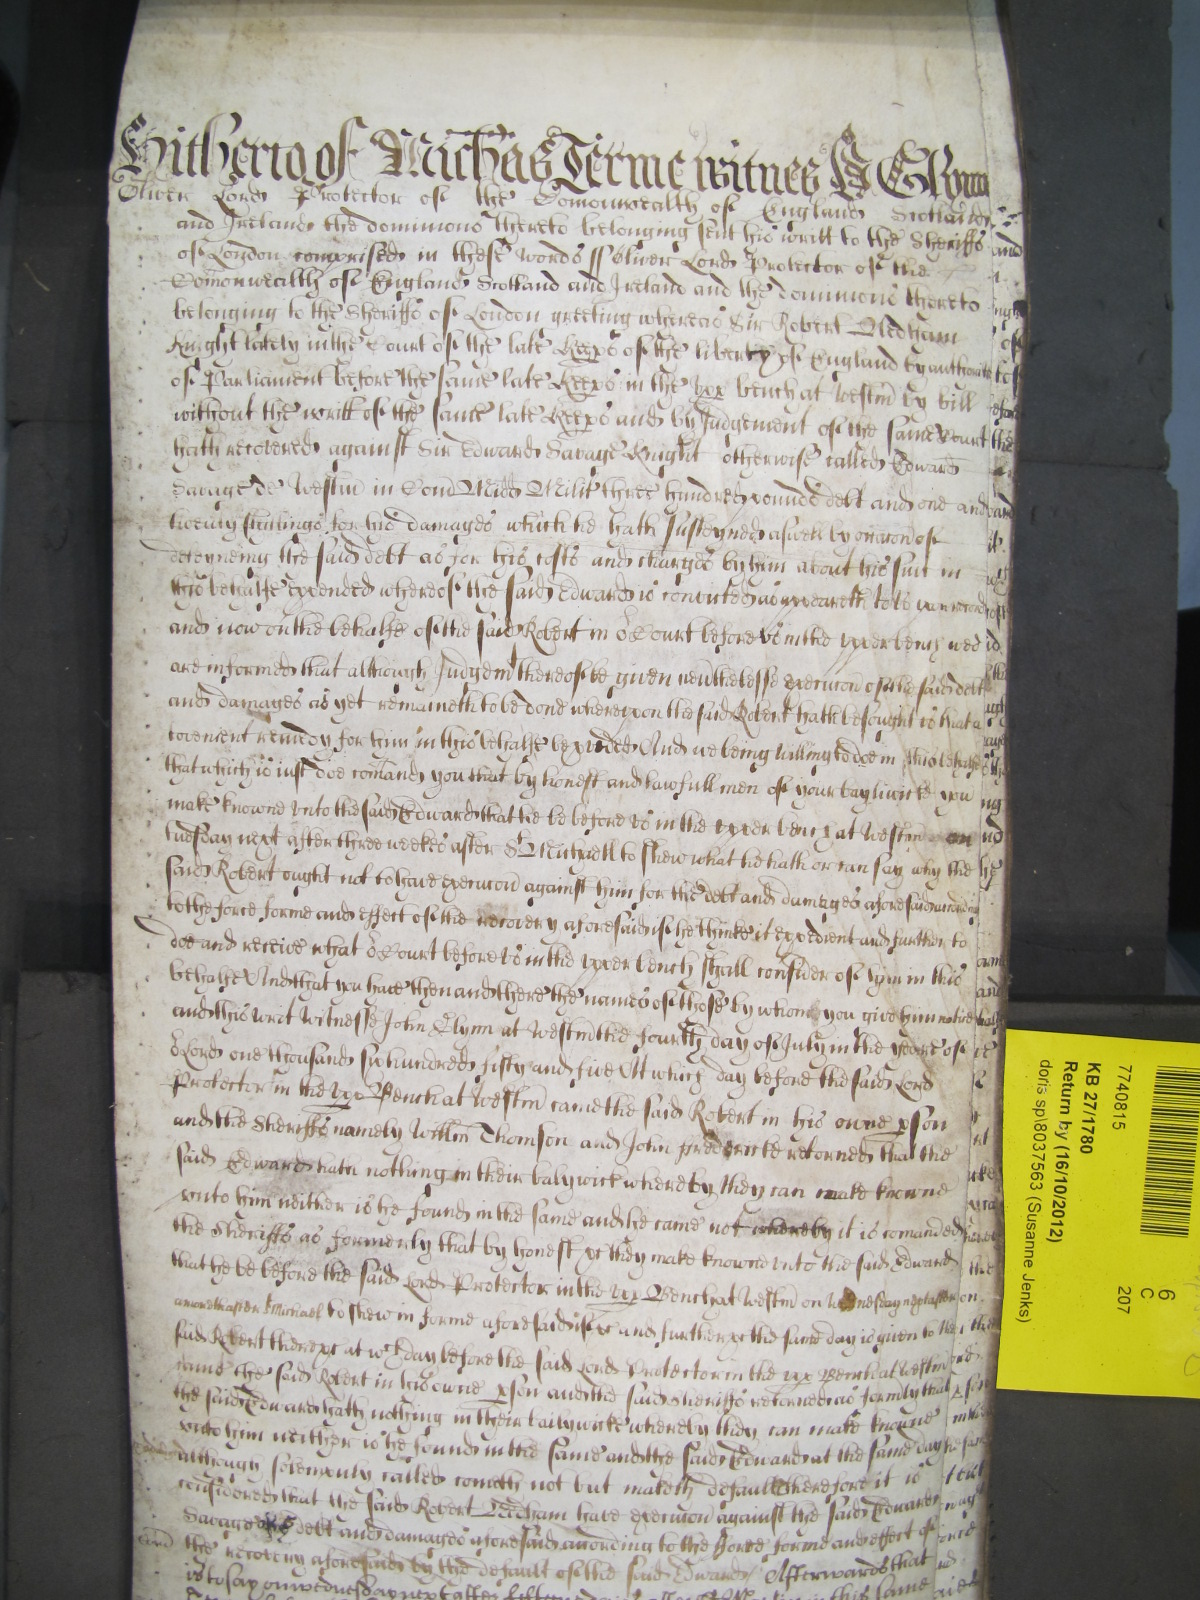 Hitherto of Michas Terme witnes J Glynn
Oliver Lord Protector of the Comonwealth of England Scotland
and Ireland the dominions thereto belonging sent his writt to the Sheriffs
of London comprised in these words ss Oliver Lord Protector of the
Comonwealth of England Scotland and Ireland and the dominions thereto
belonging to the Sheriffs of London greeting whereas Sir Robert Needham
Knight lately in the Court of the late Keeps of the liberty of England by authoritie
of Parliament before the same late Keeps in the upp bench at Westm by bill
without the writt of the same late Keeps and by Judgement of the same Court
hath recovered against Sir Edward Savage Knight otherwise called Edward
Savage de Westm in Com Midd Milit three hundred pounds debt and one and
twenty shillings for his damages which he hath susteyned aswell by occasion of
deteyneing the said debt as for his costs and charges by him about his suit in
this behalfe expended whereof the said Edward is convicted as appeareth to us upon record
and now on the behalfe of the said Robert in or Court before us in the upper bench wee
are informed that although Judgemt thereof be given neuthelesse execucon of the said debt
and damages as yet remaineth to be done whereupon the said Robert hath besought us that a
covenient remedy for him in this behalfe be pvided And we being willing to doe in this behalfe
that which is iust doe comand you that by honest and lawfull men of your bayliwicke you
make knowne unto the said Edward that he be before us in the upper bench at Westm on
tuesday next after three weekes after St Michaell to shew what he hath or can say why the
said Robert ought not to have execucon against him for the debt and damages aforesaid according
to the force forme and effect of the recovery aforesaid if he thinke it expedient and further to
doe and receive what or Court before us in the upper bench shall consider of hym in this
behalfe And that you have then and there the names of those by whom you give him notice
and this writ Witnesse John Glynn at Westm the fourth day of July in the yeare of
or Lord one thousand six hundred fifty and five At which day before the said Lord
Protector in the upp Bench at Westm came the said Robert in his owne pson
and the Sheriffs namely Willm Thomson and John Frederick retorned that the
said Edward hath nothing in their balywick whereby they can make knowne
unto him neither is he found in the same and he came not whereby it is comanded
the Sheriffs as formerly that by honest &c they make knowne unto the said Edward
that he be before the said Lord Protector in the upp Bench at Westm on Wednesday next after on
a moneth after Michael to shew in forme aforesaid if &c and further &c the same day is given to the
said Robert there &c at wch day before the said Lord Protector in the upp Bench at Westm
came the said Robert in his owne pson and the said Sheriffs retorned as formly that
the said Edward hath nothing in their bailywicke whereby they can make knowne
unto him neither is he found in the same and the said Edward at the same day
although solemnly called cometh not but maketh default Therefore it is
considered that the said Robert Needham have execucon against the said Edward
Savage of the debt and damages aforesaid according to the force forme and effect of
the recovery aforesaid by the default of the said Edward / Afterwards that
is to say on wednesday next after fifteen
7740815
KB 27/1780
Return by (16/10/2012)
doris sp\8037563 (Susanne Jenks)
6
C
207